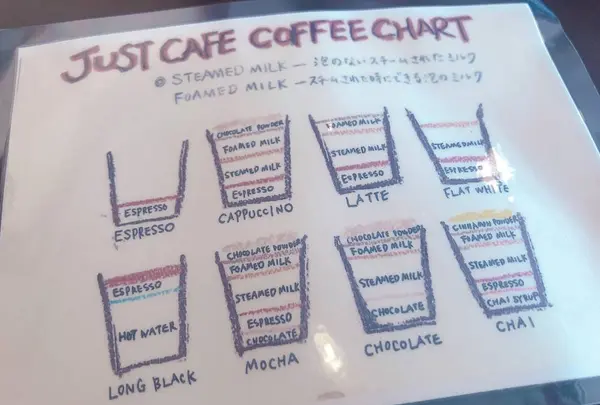 JUST CAFE COFFEE CHART
@ STEAMED MILK — 泡のないスチームされたミルク
FOAMED MILK — スチームされた時にできる泡のミルク
ESPRESSO
ESPRESSO
CHOCOLATE POWDER
FOAMED MILK
STEAMED MILK
ESPRESSO
CAPPUCCINO
FOAMED MILK
STEAMED MILK
ESPRESSO
LATTE
STEAMED MILK
ESPRESSO
FLAT WHITE
ESPRESSO
HOT WATER
LONG BLACK
CHOCOLATE POWDER
FOAMED MILK
STEAMED MILK
ESPRESSO
CHOCOLATE
MOCHA
CHOCOLATE POWDER
FOAMED MILK
STEAMED MILK
CHOCOLATE
CHOCOLATE
CINNAMON POWDER
FOAMED MILK
STEAMED MILK
ESPRESSO
CHAI SYRUP
CHAI